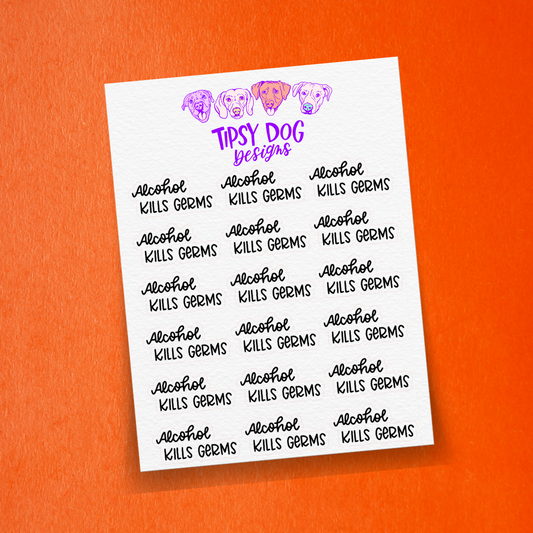 TIPSY DOG
Designs
Alcohol Alcohol Alcohol
KILLS GERMS KILLS GERMS KILLS GERMS
Alcohol Alcohol Alcohol
KILLS GERMS KILLS GERMS KILLS GERMS
Alcohol Alcohol Alcohol
KILLS GERMS KILLS GERMS KILLS GERMS
Alcohol Alcohol Alcohol
KILLS GERMS KILLS GERMS KILLS GERMS
Alcohol Alcohol Alcohol
KILLS GERMS KILLS GERMS KILLS GERMS
Alcohol Alcohol Alcohol
KILLS GERMS KILLS GERMS KILLS GERMS